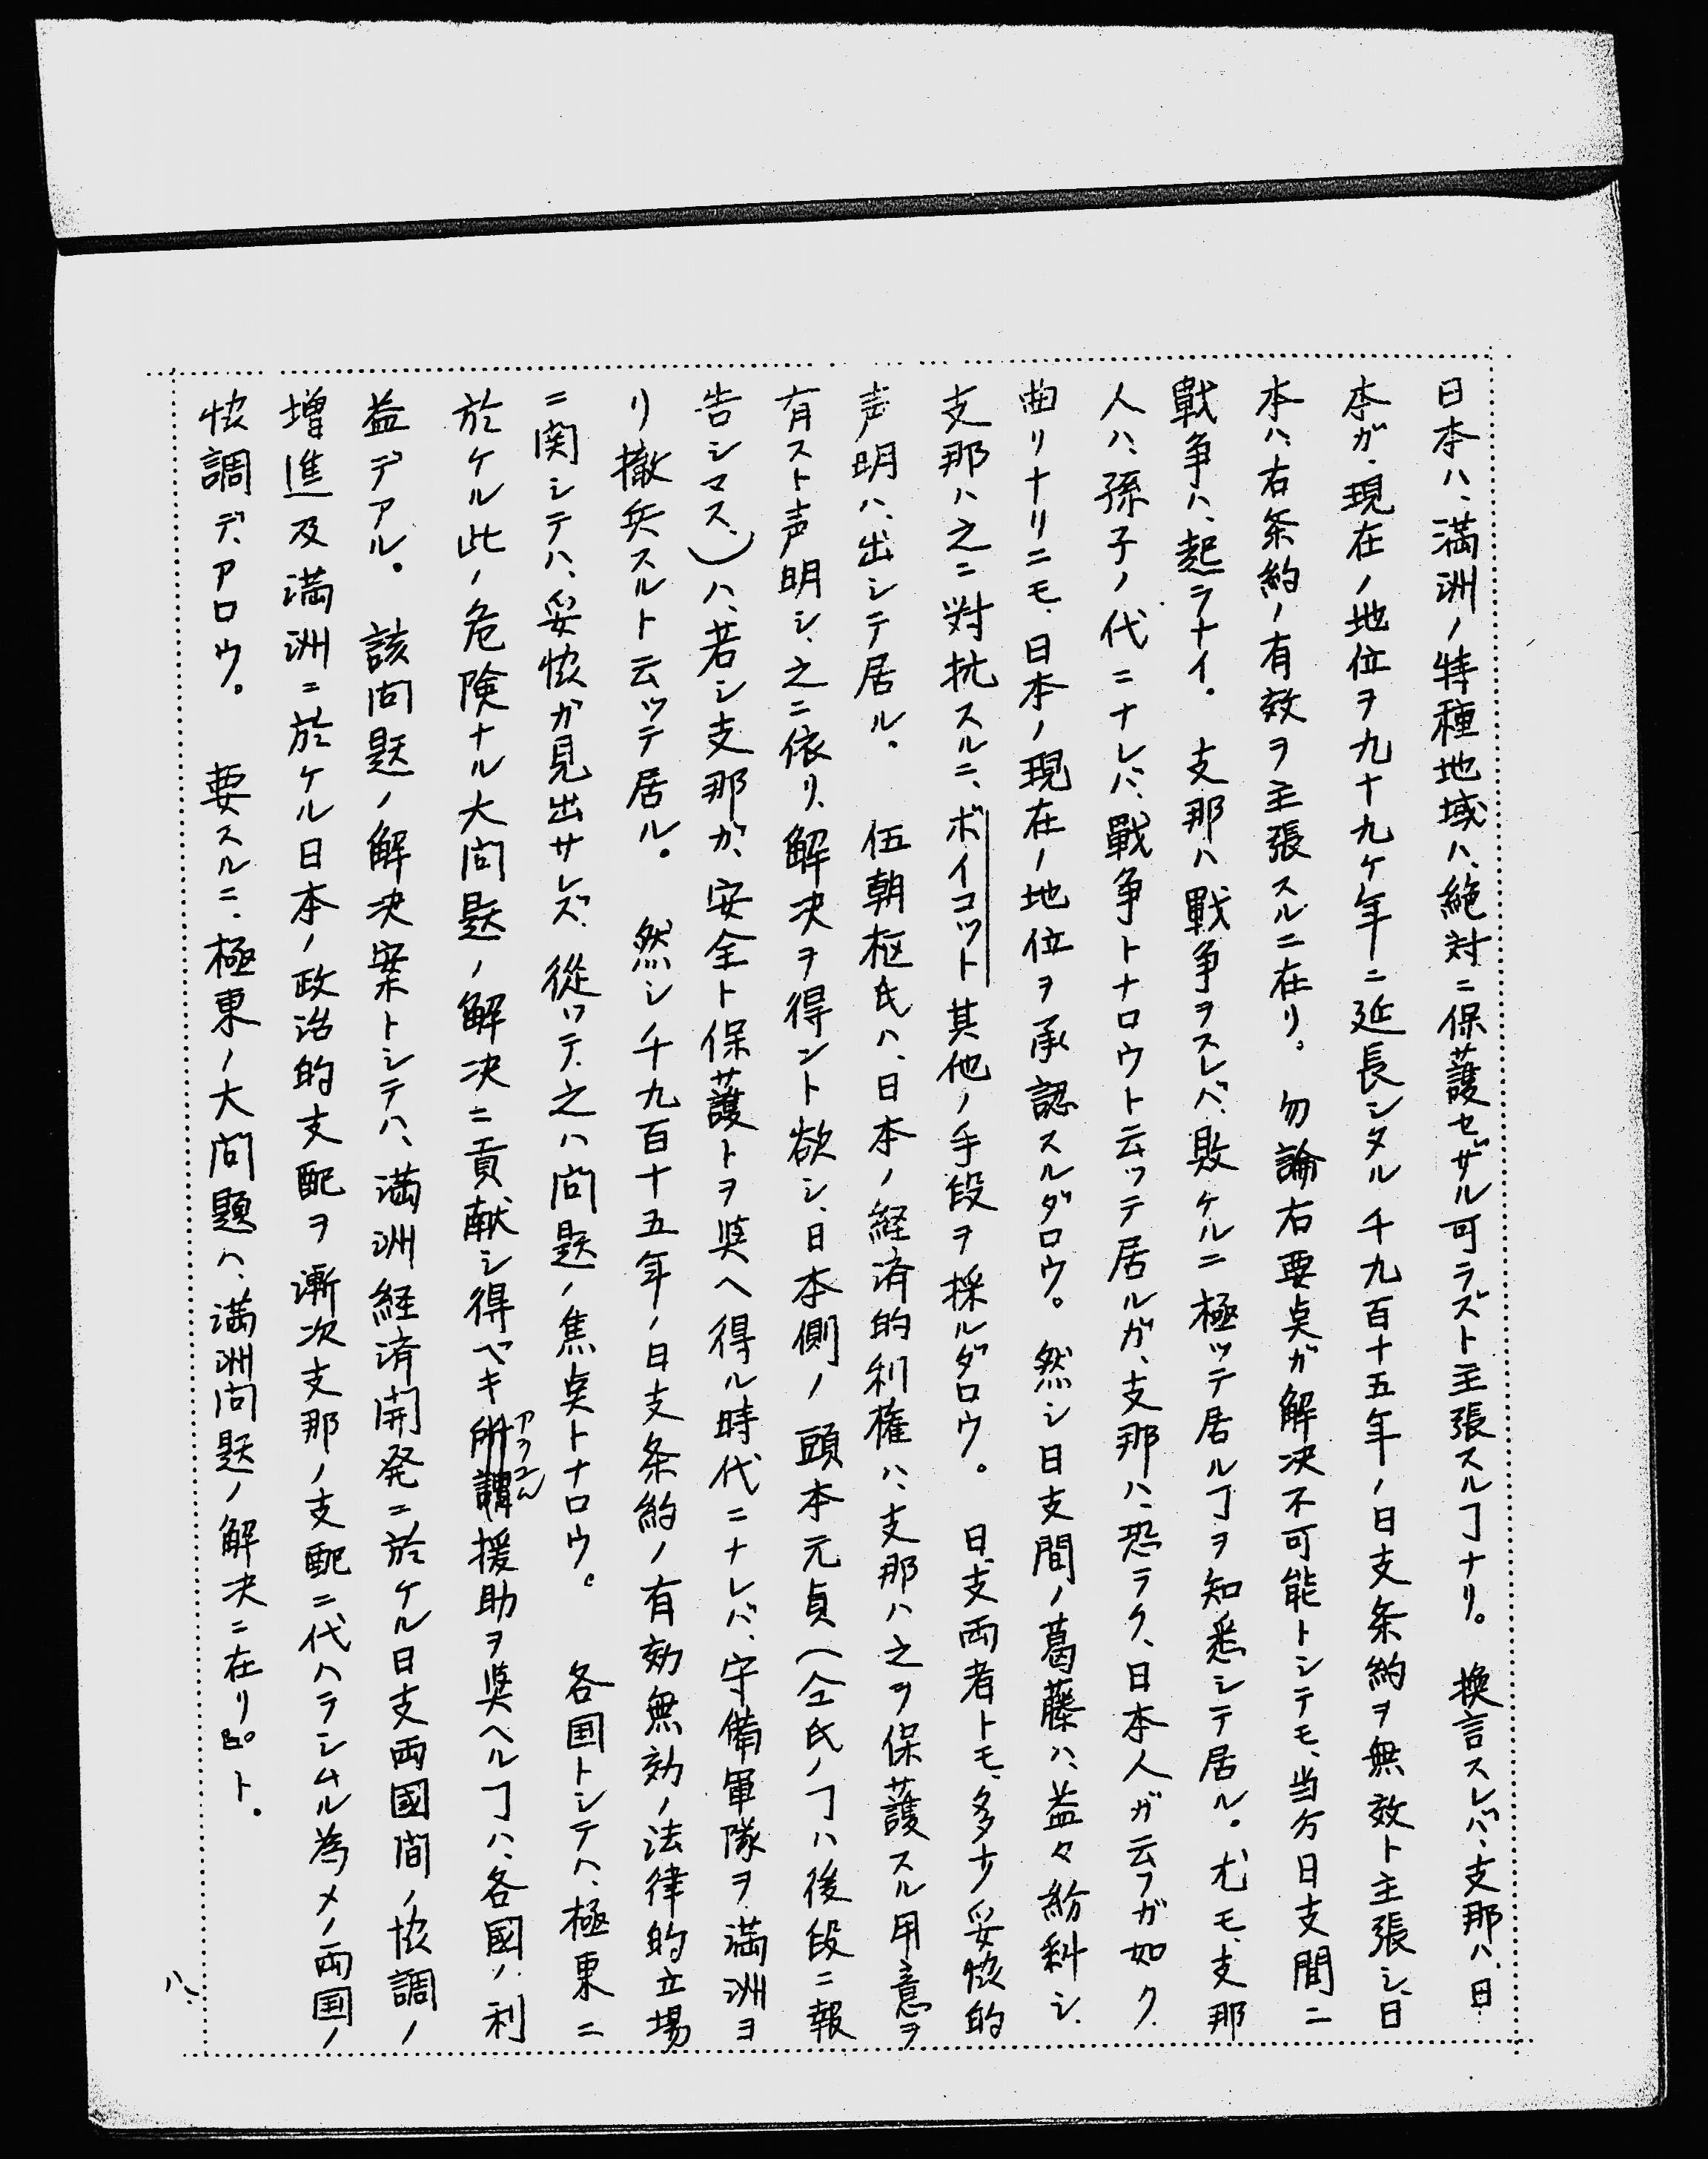 日本ハ、満洲ノ特種地域ハ、絶対ニ保護セザル可ラズト主張スルヿナリ。 換言スレバ、支那ハ、日
本ガ、現在ノ地位ヲ九十九ケ年ニ延長シタル千九百十五年ノ日支条約ヲ無效ト主張シ、日
本ハ、右条約ノ有效ヲ主張スルニ在リ。 勿論右要点ガ解决不可能トシテモ、当分日支間ニ
戰争ハ、起ラナイ。 支那ハ戰争ヲスレバ、敗ケルニ極ッテ居ルヿヲ知悉シテ居ル。尤モ、支那
人ハ、孫子ノ代ニナレバ、戰争トナロウト云ッテ居ルガ、支那ハ、恐ラク、日本人ガ云フガ如ク、
曲リナリニモ、日本ノ現在ノ地位ヲ承認スルダロウ。 然シ日支間ノ葛藤ハ、益々紛糾シ、
支那ハ之ニ対抗スルニ、ボイコット其他ノ手段ヲ採ルダロウ。 日、支両者トモ、多少妥協的
声明ハ、出シテ居ル。 伍朝枢氏ハ、日本ノ経済的利権ハ、支那ハ之ヲ保護スル用意ヲ
有スト声明シ、之ニ依リ、解决ヲ得ント欲シ、日本側ノ頭本元貞(仝氏ノヿハ後段ニ報
告シマス、)ハ、若シ支那ガ、安全ト保護トヲ與ヘ得ル時代ニナレバ、守備軍隊ヲ満洲ヨ
リ撤兵スルト云ッテ居ル。 然シ千九百十五年ノ日支条約ノ有効無効ノ法律的立場
ニ関シテハ、妥協ガ見出サレズ、從ッテ、之ハ問題ノ焦点トナロウ。 各国トシテハ、極東ニ
於ケル此ノ危険ナル大問題ノ解决ニ貢献シ得ベキ援助ヲ與ヘルヿハ、各國ノ利
益デアル。 該問題ノ解决案トシテハ、満洲経済開発ニ於ケル日支両國間ノ協調ノ
増進及満洲ニ於ケル日本ノ政治的支配ヲ漸次支那ノ支配ニ代ハラシムル為メノ両国ノ
協調デアロウ。 要スルニ、極東ノ大問題ハ、満洲問題ノ解决ニ在リ』ト。
八、